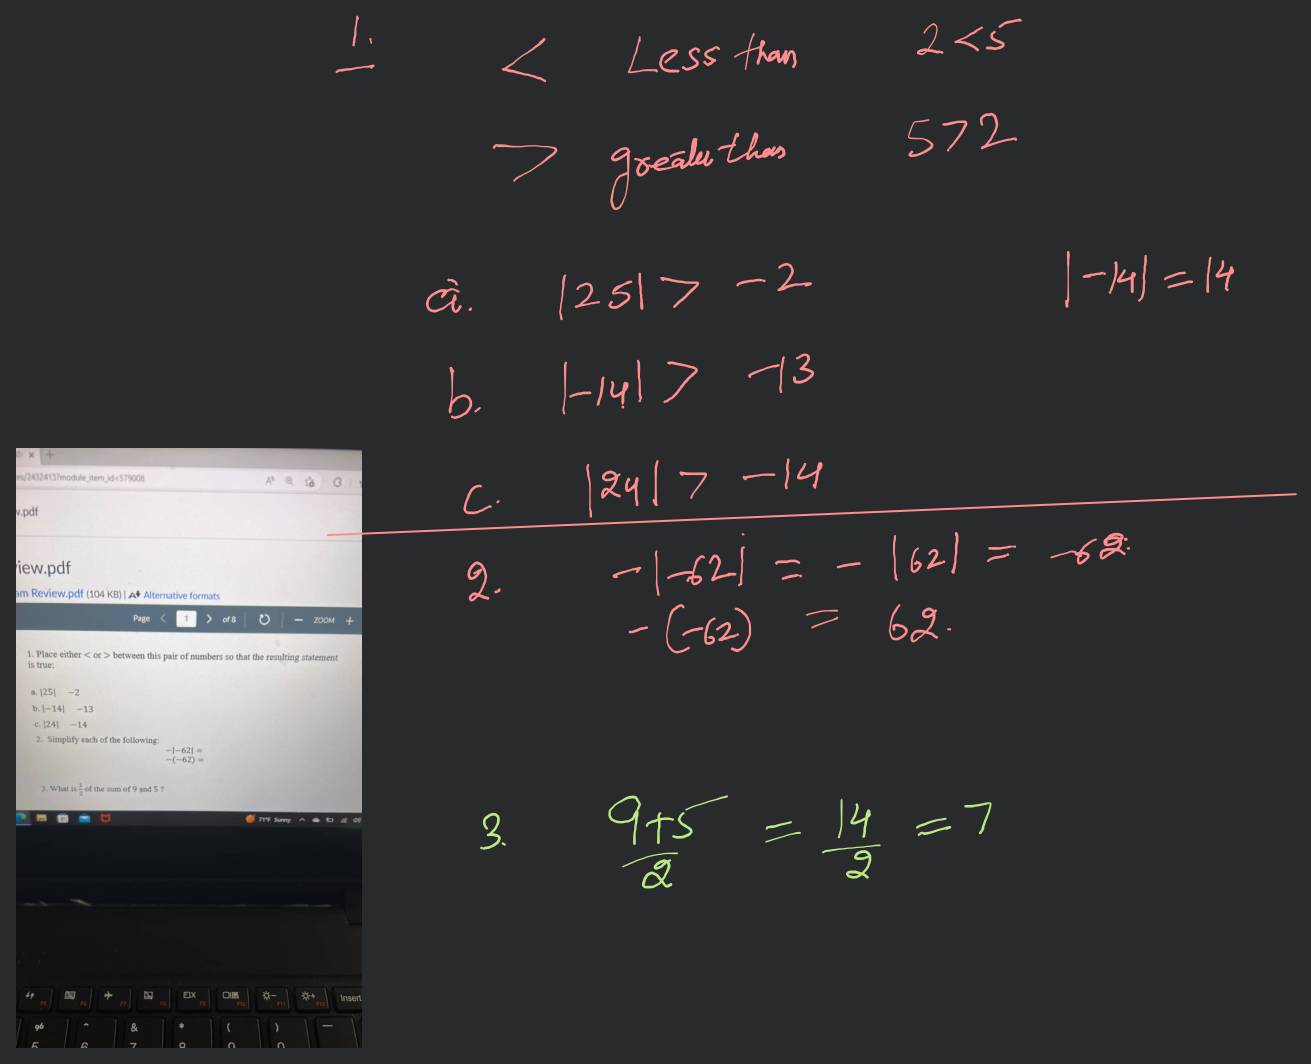 1.
< Less than 2<5
> greater than 5>2
a. |25| > -2 |-14| = 14
b. |-14| > -13
c. |24| > -14
2. -|-62| = -|62| = -62.
-(-62) = 62.
3. 9+5/2 = 14/2 = 7
v.pdf
iew.pdf
am Review.pdf (104 KB) | A Alternative formats
Page < 1 > of 8 − ZOOM +
1. Place either < or > between this pair of numbers so that the resulting statement
is true:
a. |25| −2
b. |−14| −13
c. |24| −14
2. Simplify each of the following:
−|−62| =
−(−62) =
3. What is 1/2 of the sum of 9 and 5 ?
77°F Sunny
Insert
% ^ & * ( )